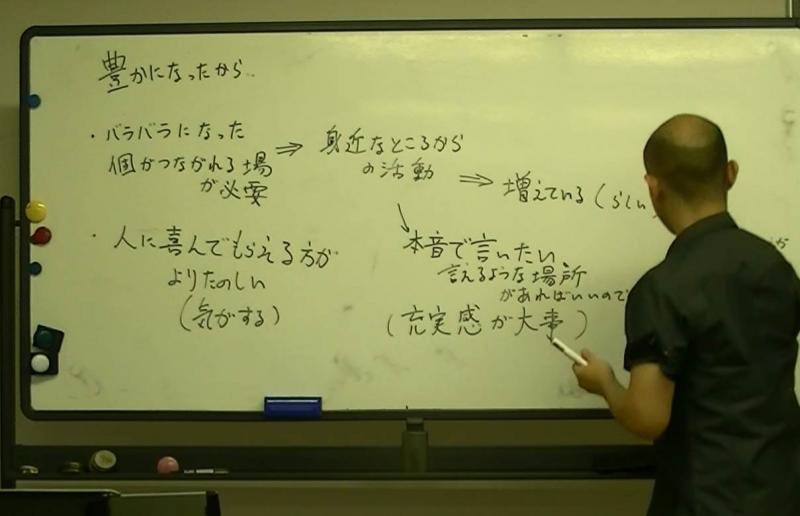 豊かになったから
・バラバラになった
個がつながれる場
が必要
⇒ 身近なところから
の活動
⇒ 増えている(らしい
本音で言いたい
言えるような場所
があればいいので
(充実感が大事)
・人に喜んでもらえる方が
よりたのしい
(気がする)
が